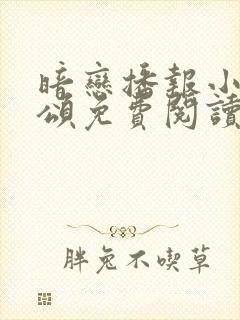 暗戀播報小
頌免費閱讀
胖兔不喫草